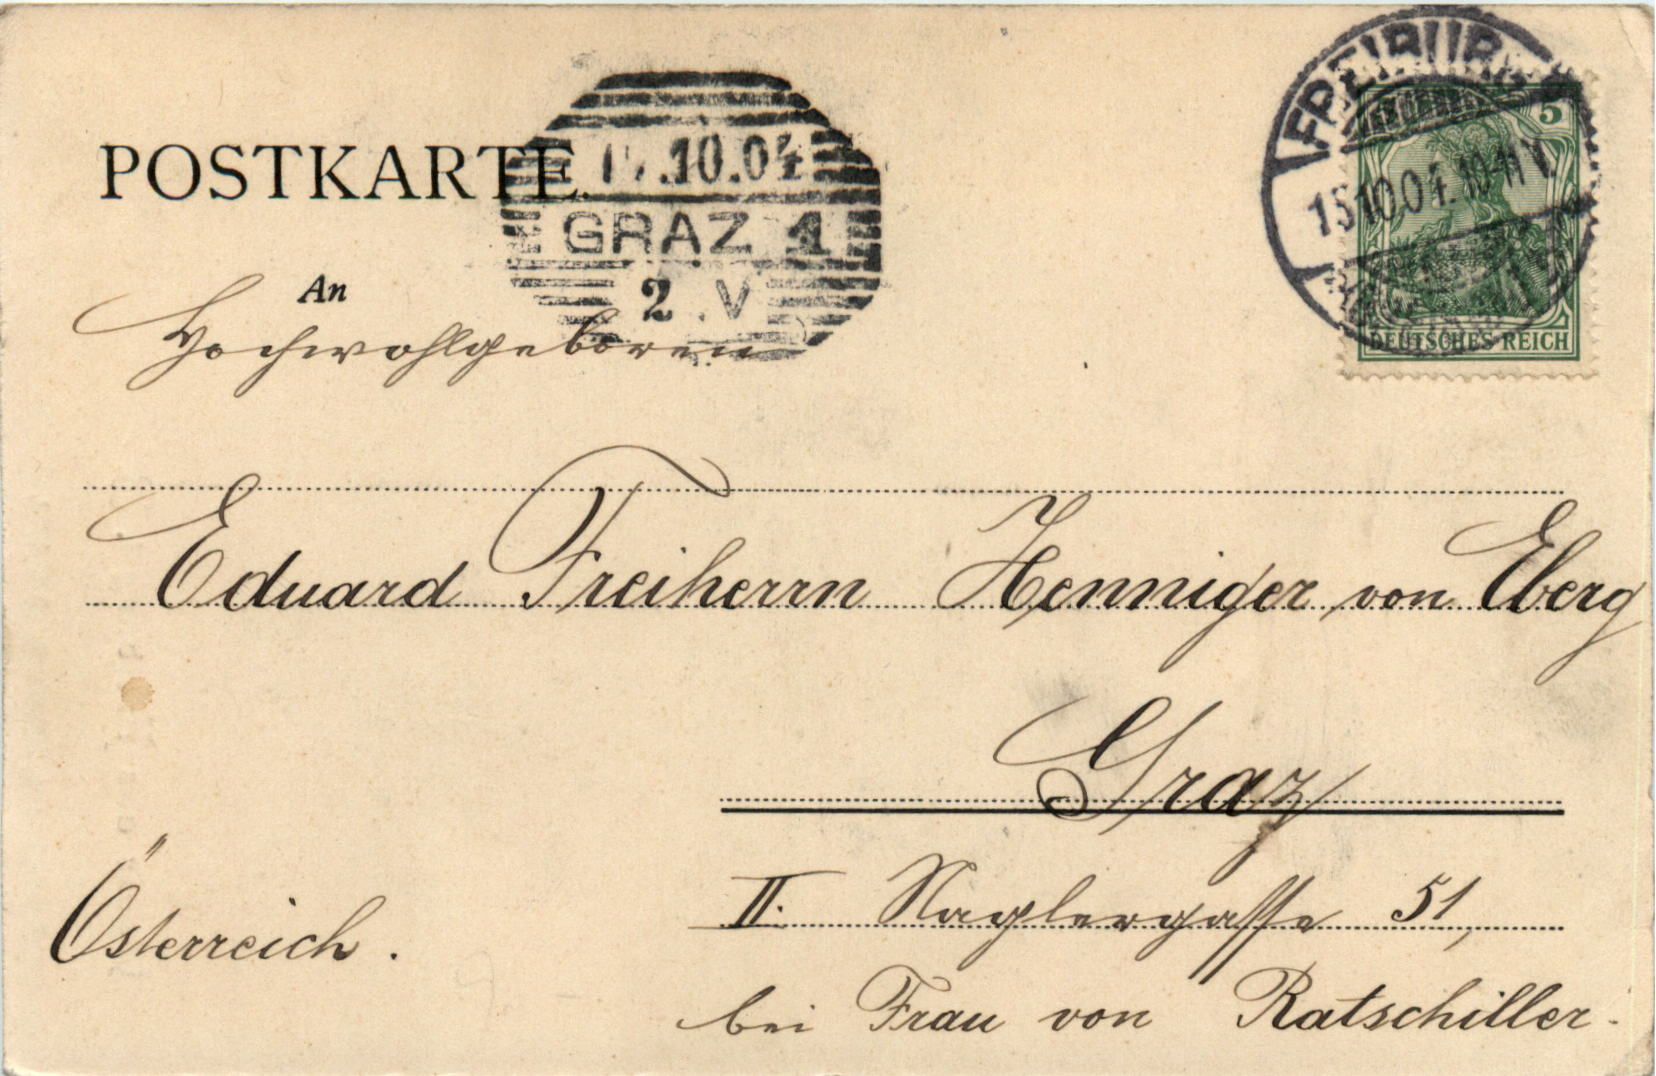 POSTKARTE.
.10.04
GRAZ 1
2.V
FREIBURG
15.10.04.10-11V.
5
DEUTSCHES REICH
An
Hochwohlgeboren
Eduard Freiherrn Henniger von Eberg
Graz
II. Naglergasse 51,
bei Frau von Ratschiller.
Österreich.